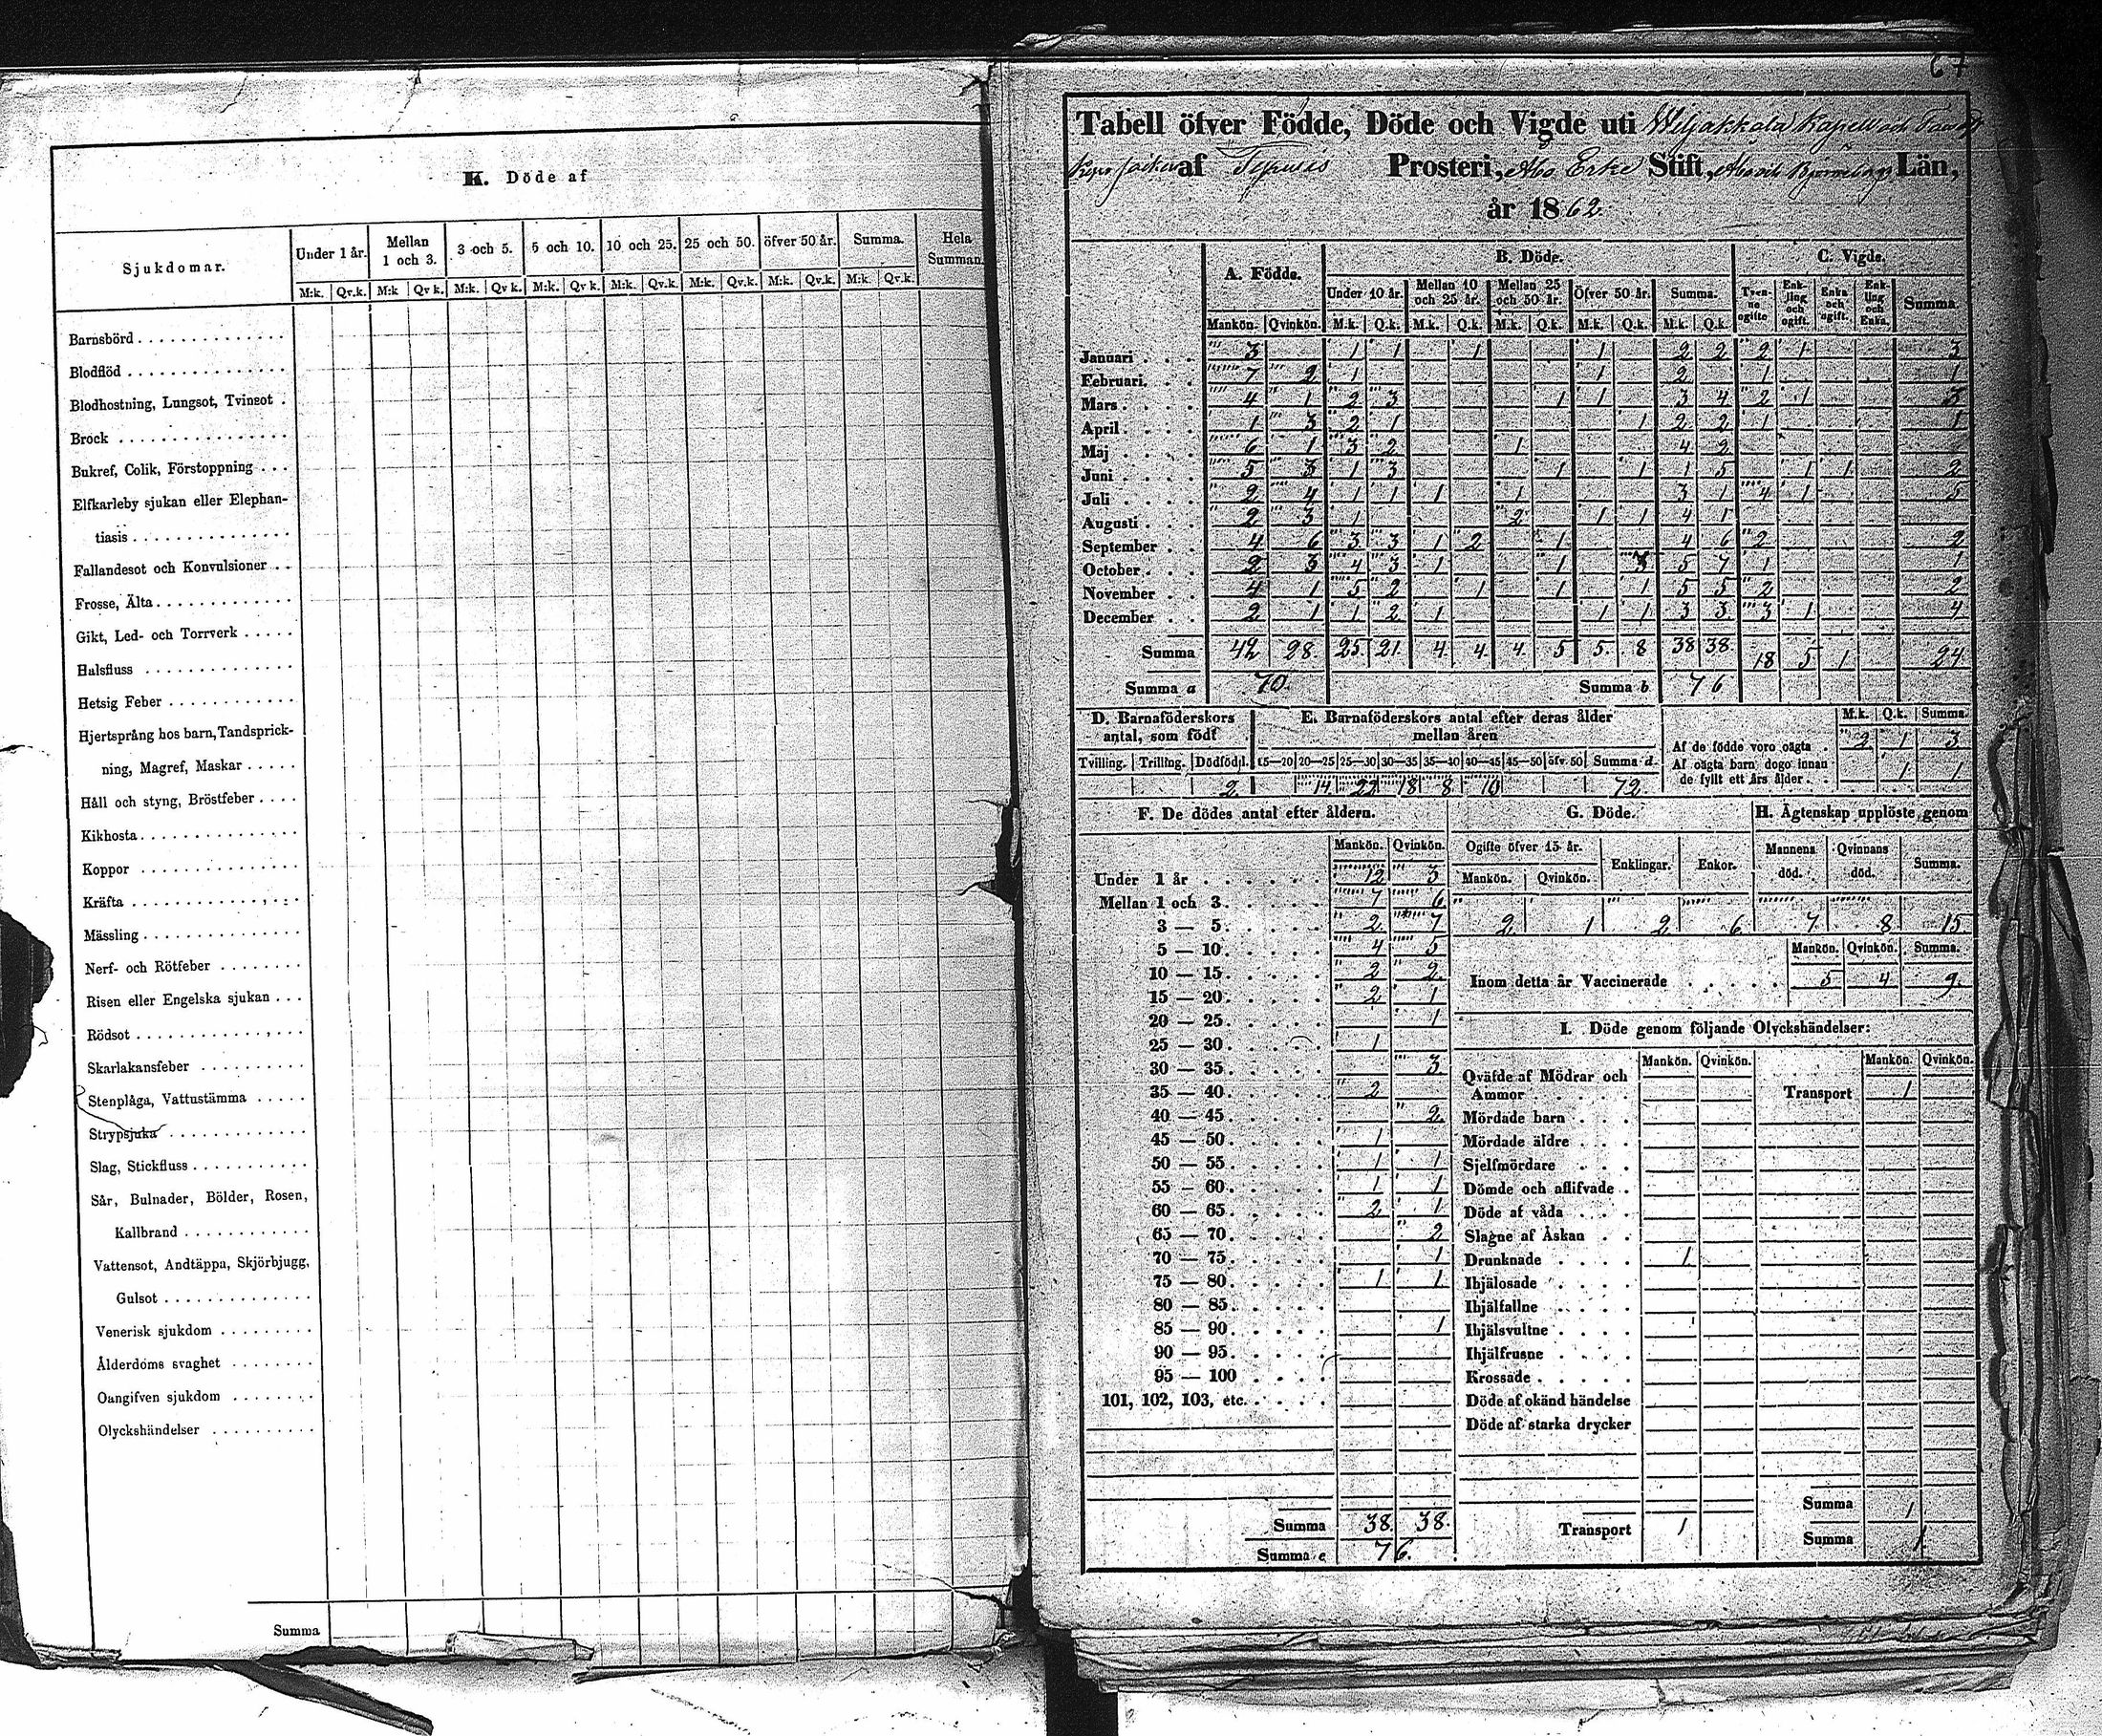 K. Döde af
Sjukdomar. Under 1 år. Mellan 1 och 3. 3 och 5. 5 och 10. 10 och 25. 25 och 50. öfver 50 år. Summa. Hela Summan.
M:k. Qv.k. M:k Qv k. M:k. Qv k. M:k. Qv k. M:k. Qv.k. M:k. Qv.k. M:k. Qv.k. M:k Qv.k.
Barnsbörd
Blodflöd
Blodhostning, Lungsot, Tvinsot
Bröck
Bukref, Colik, Förstoppning
Elfkarleby sjukan eller Elephan-
tiasis
Fallandesot och Konvulsioner
Frosse, Älta
Gikt, Led- och Torrverk
Halsfluss
Hetsig Feber
Hjertsprång hos barn, Tandsprick-
ning, Magref, Maskar
Håll och styng, Bröstfeber
Kikhosta
Koppor
Kräfta
Mässling
Nerf- och Rötfeber
Risen eller Engelska sjukan
Rödsot
Skarlakansfeber
Stenplåga, Vattustämma
Strypsjuka
Slag, Stickfluss
Sår, Bulnader, Bölder, Rosen,
Kallbrand
Vattensot, Andtäppa, Skjörbjugg,
Gulsot
Venerisk sjukdom
Ålderdoms svaghet
Oangifven sjukdom
Olyckshändelser
Summa
67
Tabell öfver Födde, Döde och Vigde uti Wiljakkala Kapell och
af Tyrvis Prosteri, Åbo Erke Stift, Län,
år 1862
A. Födde. B. Döde. C. Vigde.
Under 10 år. Mellan 10 och 25 år. Mellan 25 och 50 år. Öfver 50 år. Summa. Tvenne ogifte Enkling och ogift. Enka och ogift. Enkling och Enka. Summa.
Mankön. Qvinkön. M.k. Q.k. M.k. Q.k. M.k. Q.k. M.k. Q.k. M.k. Q.k.
Januari 3 1 1 1 1 2 2 2 1 3
Februari 7 2 1 1 2 1 1
Mars 4 1 2 3 1 1 3 4 2 1 3
April 1 3 2 1 1 2 2 1 1
Maj 6 1 3 2 1 4 2
Juni 5 3 1 3 1 1 1 5 1 1 2
Juli 2 4 1 1 1 1 3 1 4 1 5
Augusti 2 3 1 2 1 1 4 1
September 4 6 3 3 1 2 1 4 6 2 2
October 2 3 4 3 1 1 3 5 7 1 1
November 4 1 5 2 1 1 1 5 5 2 2
December 2 1 1 2 1 1 1 3 3 3 1 4
Summa 42 28 25 21 4 4 4 5 5 8 38 38 18 5 1 24
Summa a 70. Summa b 76
D. Barnaföderskors antal, som födt
Tvilling. Trilling. Dödfödd.
2
E. Barnaföderskors antal efter deras ålder mellan åren
15—20 20—25 25—30 30—35 35—40 40—45 45—50 öfv. 50 Summa d.
14 22 18 8 10 72
M.k. Q.k. Summa.
Af de födde voro oägta 2 1 3
Af oägta barn dogo innan
de fyllt ett års ålder 1 1
F. De dödes antal efter åldern.
Mankön. Qvinkön.
Under 1 år 12 3
Mellan 1 och 3 7 6
3 — 5 2 7
5 — 10 4 5
10 — 15 2 2
15 — 20 2 1
20 — 25 1
25 — 30 1
30 — 35 3
35 — 40 2
40 — 45 2
45 — 50 1
50 — 55 1 1
55 — 60 1 1
60 — 65 2 1
65 — 70 2
70 — 75 1
75 — 80 1 1
80 — 85
85 — 90 1
90 — 95
95 — 100
101, 102, 103, etc.
Summa 38 38
Summa e 76.
G. Döde.
Ogifte öfver 15 år. Enklingar. Enkor.
Mankön. Qvinkön.
2 1 2 6
H. Ägtenskap upplöste genom
Mannens död. Qvinnans död. Summa.
7 8 15
Mankön. Qvinkön. Summa.
Inom detta år Vaccinerade 5 4 9.
I. Döde genom följande Olyckshändelser:
Mankön. Qvinkön. Mankön. Qvinkön.
Qväfde af Mödrar och
Ammor Transport 1
Mördade barn
Mördade äldre
Sjelfmördare
Dömde och aflifvade
Döde af våda
Slagne af Åskan
Drunknade 1
Ihjälosade
Ihjälfallne
Ihjälsvultne
Ihjälfrusne
Krossade
Döde af okänd händelse
Döde af starka drycker
Transport 1
Summa 1
Summa 1